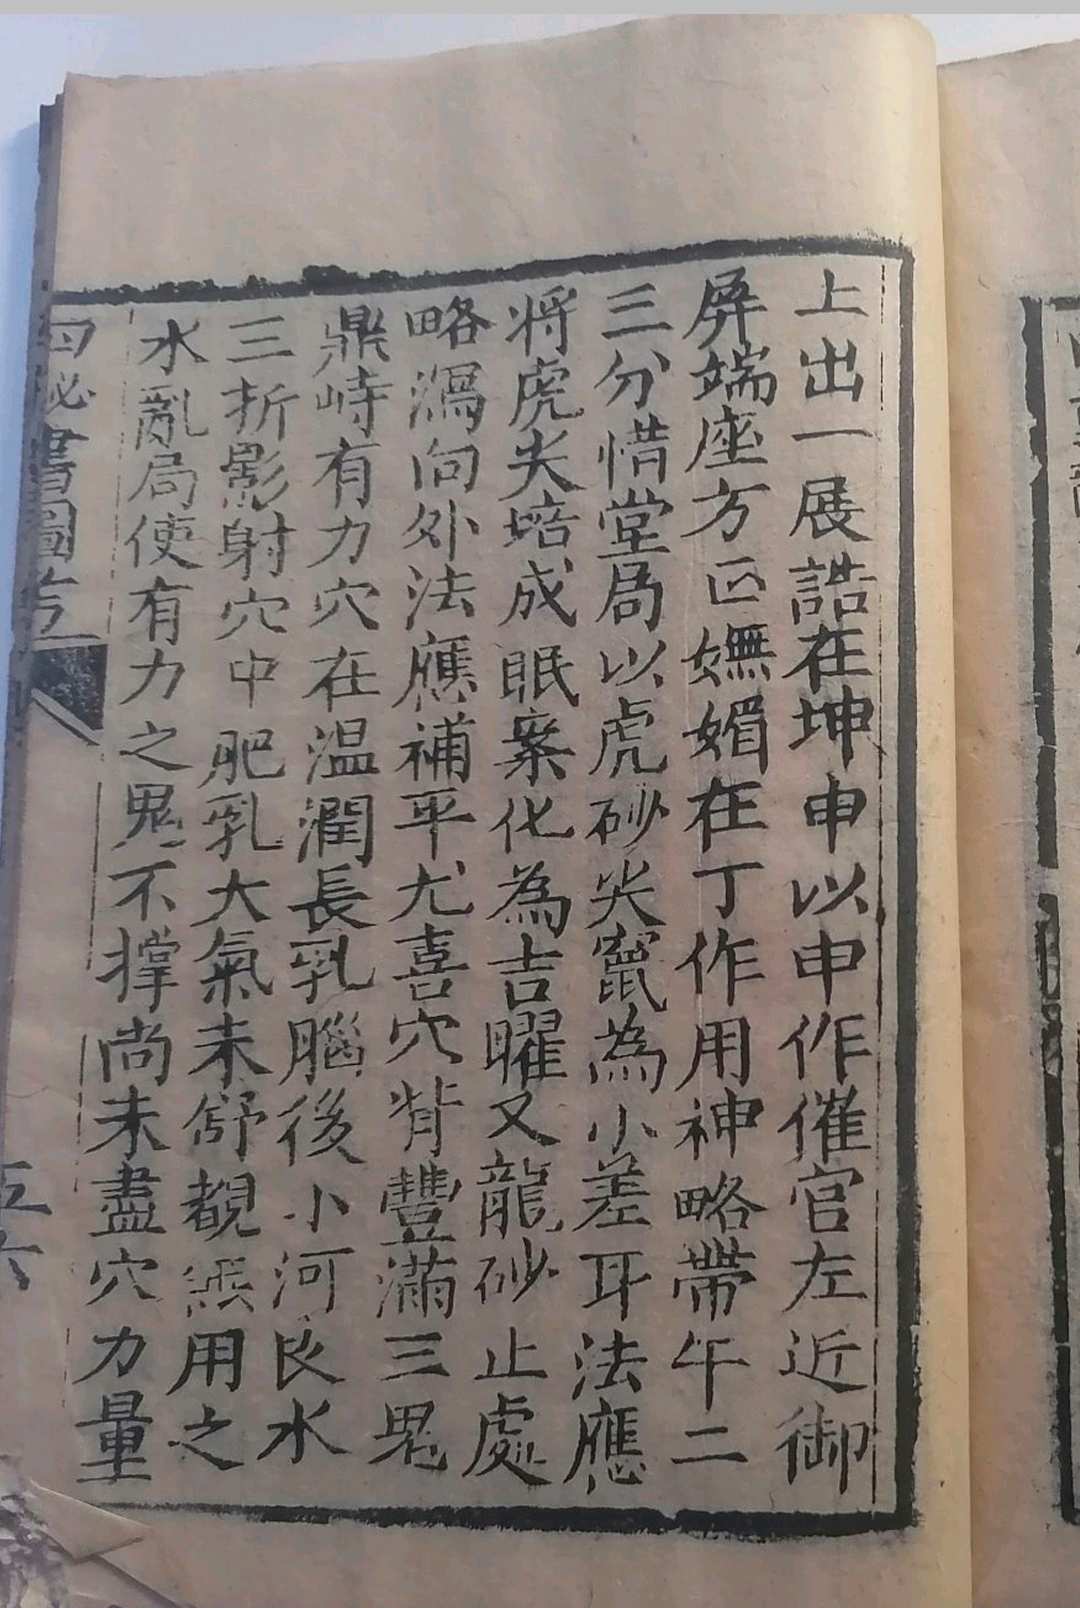 上出一展誥在坤申以申作催官左近御
屏端座方正嫵媚在丁作用神略帶午二
三分惜堂局以虎砂尖竄為小差耳法應
將虎尖培成眠案化為吉曜又龍砂止處
略瀉向外法應補平尤喜穴背豐滿三鬼
鼎峙有力穴在温潤長乳腦後小河艮水
三折影射穴中肥乳大氣未舒覩無用之
水亂局使有力之鬼不撑尚未盡穴力量
秘書圖
五六